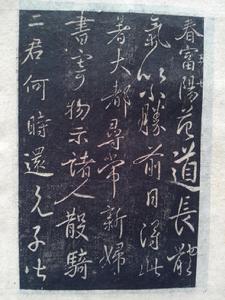 春富陽范道長散
氣以不勝前日得此
著大都尋常新婦
書寄物示諸人散騎
二君何時還兄子